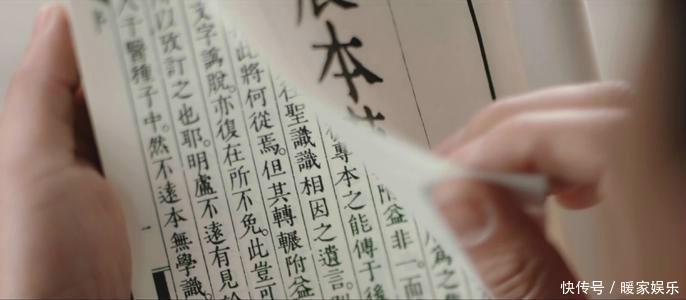 本
為之
附益非一面
專本之能傳于後
聖識識相因之遺言
此將何從焉。但其轉輾附益
文字譌脫。亦復在所不免。此豈可
以攷訂之也耶。明盧不遠有見
于醫種子中。然不遠本無學識。
快传号 / 暖家娱乐